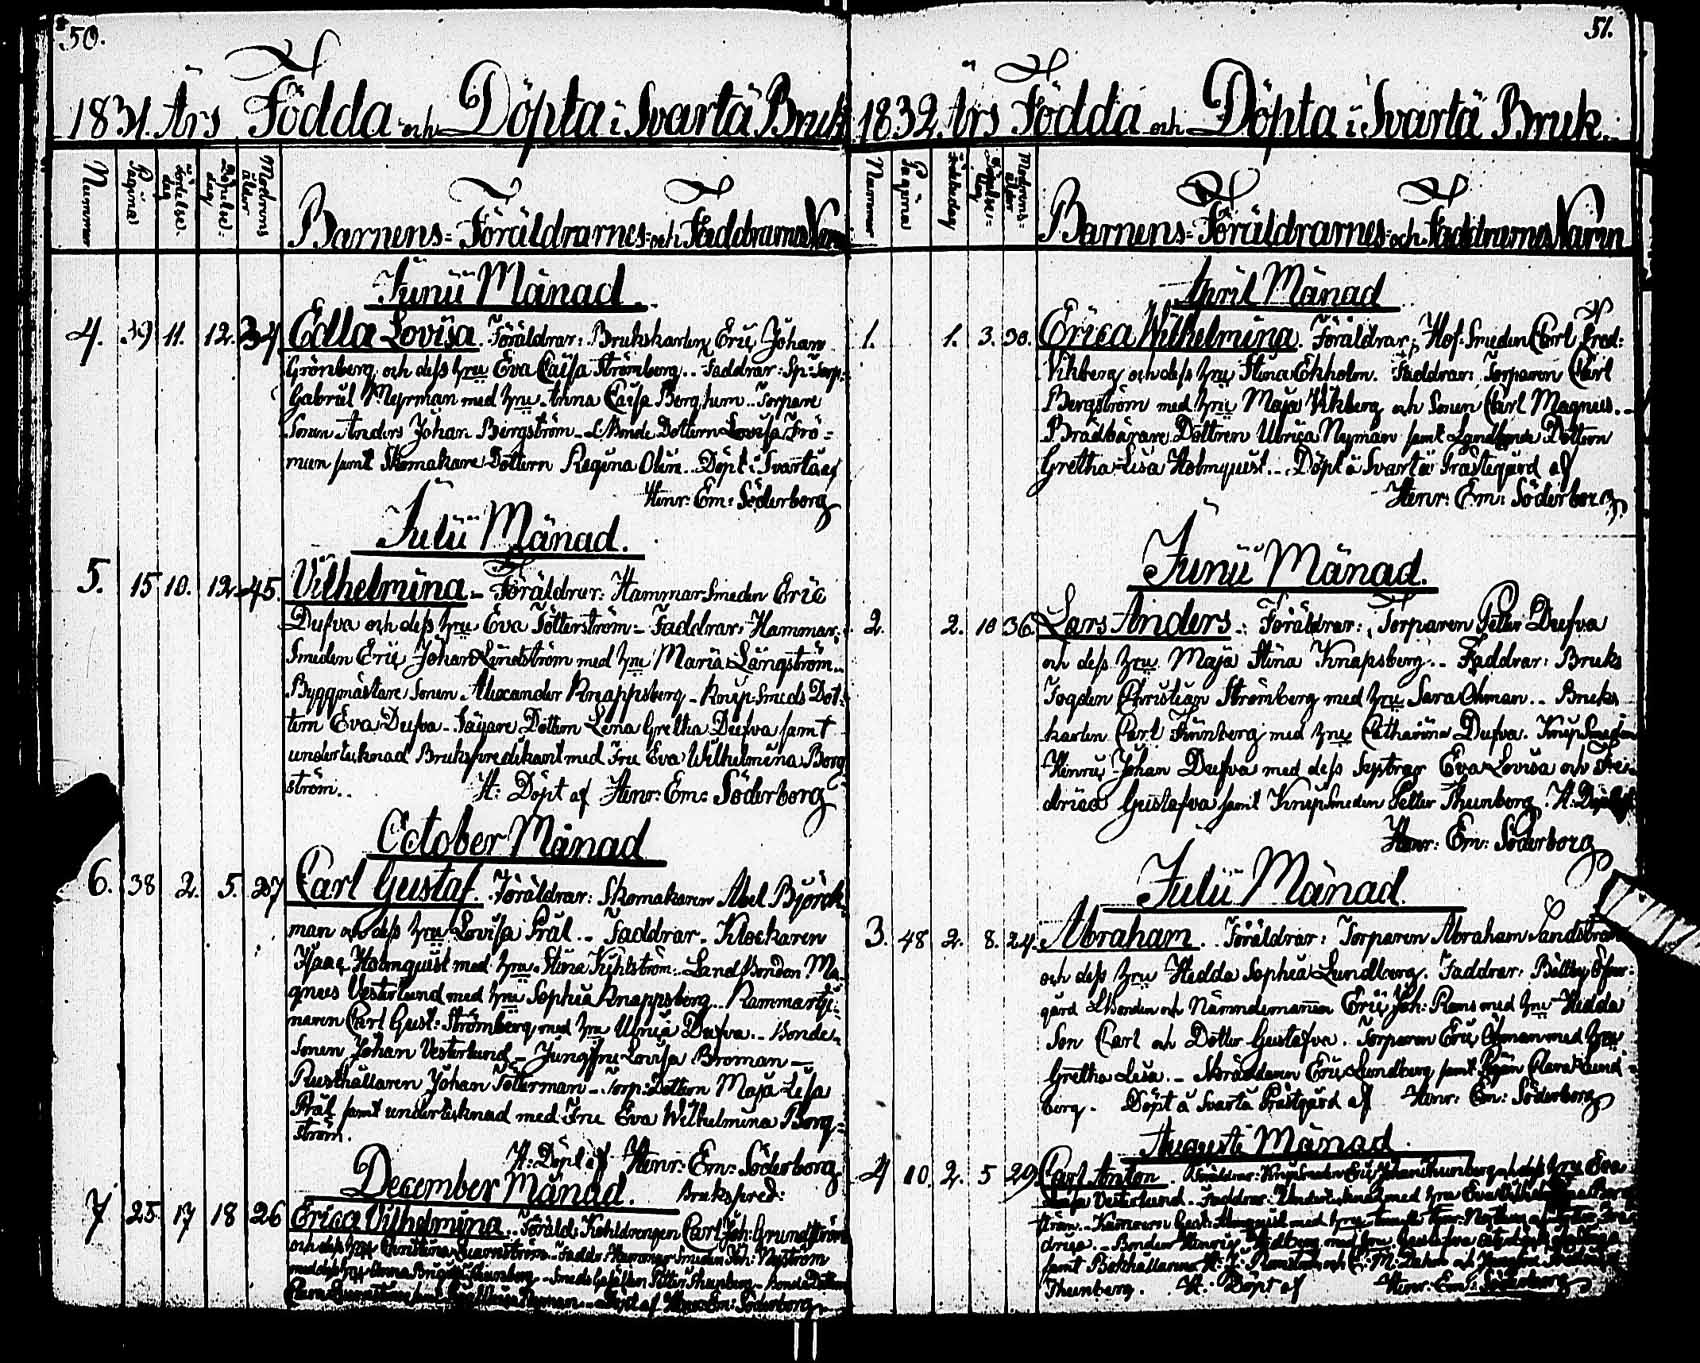 50.
1831. Års Födda och Döpta i Svartå Bruk
Nummer
Pagina
Födelse-dag
Döpelse-dag
Modrens ålder
Barnens- Föräldrarnes- och Faddrarnes Namn
Junii Månad.
4. 39 11. 12. 34 Edla Lovisa. Föräldrar: Brukskarlen Eric Johan
Grönberg och dess hru Eva Caisa Strömberg.. Faddrar: Sp: Torp:
Gabriel Meyrman med hru Anna Caisa Berghem.. Torpare
Sonen Anders Johan Bergström - L: Bonde Dottern Lovisa Frö=
man samt Skomakare Dottern Regina Olin.. Döpt i Svartå af
Henr: Em: Söderborg
Julii Månad.
5. 15 10. 12. 45. Vilhelmina - Föräldrar: Hammar Smeden Eric
Dufva och dess hru Eva Tötterström - Faddrar: Hammar-
Smeden Eric Johan Lindström med hru Maria Långström..
Byggmästare Sonen Alexander Knappsberg - Knip-Smeds Dot-
tern Eva Dufva - Sågare Dottern Lena Gretha Dufva samt
undertecknad Brukspredikant med Fru Eva Wilhelmina Borg
ström.. H: Döpt af Henr: Em: Söderborg
October Månad
6. 38 2. 5. 27 Carl Gustaf. Föräldrar: Skomakaren Abel Björck-
man och dess hru Lovisa Präl.. Faddrar. Klockaren
Isaac Holmquist med hru Stina Kihlström. Land Bonden Ma-
gnus Vesterlund med hru Sophia Knappsberg.. Kammartje-
naren Carl Gust: Strömberg med hru Ulrica Dufva.. Bonde-
Sonen Johan Vesterlund - Jungfru Lovisa Broman -
Rusthållaren Johan Tötterman - Torp: Dottern Maja Lisa
Präl samt undertecknad med Fru Eva Wilhelmina Borg-
ström.
H: Döpt af Henr: Em: Söderborg
Brukspred:
December Månad.
7 25 17 18 26 Erica Vilhelmina.. Föräld: Kohldrengen Carl Joh: Grundström
och dess hru Christina.. Fadd: Hammar Smeden Joh: Nyström
med dess hru Anna Brigitta Thunberg - Smeds Gesällen Petter Thunberg - Bonde Dottern
Döpt af Henr: Em: Söderborg
51.
1832 Års Födda och Döpta i Svartå Bruk.
Nummer
Pagina
Födelsedag
Döpelse-dag
Modrens ålder
Barnens- Föräldrarnes- och Faddrarnes Namn
April Månad
1. 1. 3. 30. Erica Wilhelmina. Föräldrar: Hof-Smeden Carl Fred:
Vikberg och dess hru Stina Ekholm. Faddrar: Torparen Carl
Bergström med hru Maja Vikberg och Sonen Carl Magnus..
Brädbärare Dottren Ulrica Neyman samt Landbonde Dottern
Gretha Lisa Holmquist.. Döpt å Svartå Prästegård af
Henr: Em: Söderborg.
Junii Månad.
2. 2. 10 36. Lars Anders.. Föräldrar: Torparen Petter Dufva
och dess hru Maja Stina Knapsberg.. Faddrar: Bruks
Fogden Christian Strömberg med hru Sara Öhman.. Bruks
karlen Carl Finnberg med hru Catharina Dufva. Knip Smeden
Henric Johan Dufva med dess Systrar Eva Lovisa och Fre-
drica Gustafva samt Knipsmeden Petter Thunberg. H: Döpt af
Henr: Em: Söderborg
Julii Månad.
3. 48 2. 8. 24. Abraham. Föräldrar: Torparen Abraham Sandström
och dess hru Hedda Sophia Lundberg. Faddrar: Bältby Öfver-
gård L:bonden och Nämndemannen Eric Joh: Roms med hru Hedda
Son Carl och Dotter Gustafva. Torparen Eric Öhman med hru
Gretha Lisa.. Skräddaren Eric Lundberg samt Pigan Clara Lund-
berg. Döpt å Svartå Prästgård af Henr: Em: Söderborg
Augusti Månad.
4 10. 2. 5 29. Carl Anton. Föräldrar: Knipsmeden Eric Johan Thunberg och dess hru Eva
Vesterlund - Faddrar: Undertecknad med hru Eva Wilhelmina Borg-
ström.. Gust: Almquist med hru
drica - Bonden Henric med hru Gustafva
samt Bokhållarne
Thunberg. H: Döpt af Henr: Em: Söderborg